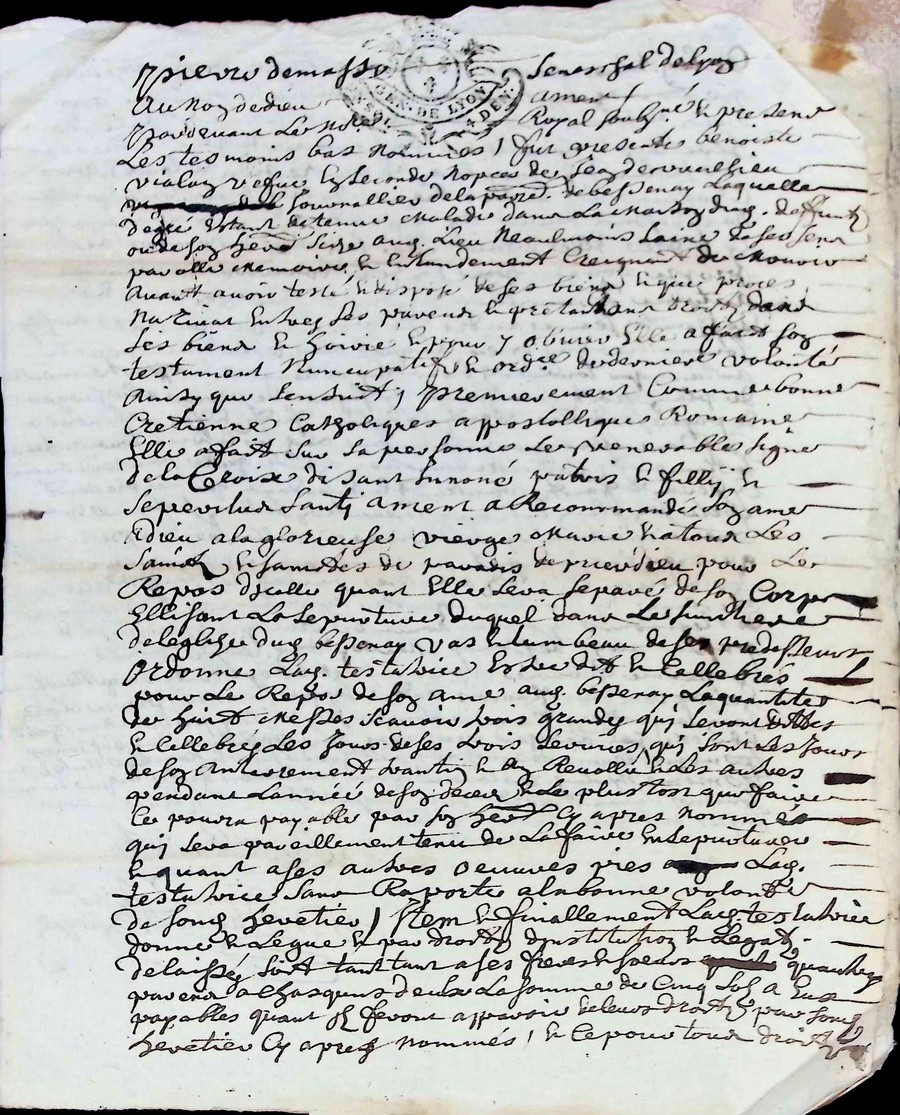 pierre demasso Seneschal de lyon
GEN. DE LYON
4 DEN.
Au Nom de dieu amen
pardevant Le Notre Royal soubsné & presens
Les tesmoins bas Nommes / fut presente benoiste
vialon vefue En seconde Nopces de Jean
Journallier dela parr. de bessenay Laquelle
estant detenue malade dans La maison dud. deffunt
ou de son herr size aud. Lieu Neaulmoins saine de ses sens
parolle memoire & Entandement Creignant de mourir
Avant avoir testé & disposé de ses biens & que proces
Nacquit Entre ses parens & pretandans droitz dans
Ses biens & hoirie & pour y obvier Elle a fait son
testament Nuncupatif & ordce de derniere volonté
Ainsy que sensuit / premierement Comme bonne
Cretienne Catholique appostollique Romaine
Elle a fait sur sa personne Le venerable signe
dela Croix disant Innoné patris & fillij &
Sepiritus Santj ament a Recommandé son ame
A dieu a la glorieuse vierge marie & a tous Les
Saincts & sainctes de paradis de prier dieu pour Le
Repos dicelle quant Elle sera separé de son Corps
Ellisant La sepulture duquel dans Le simithiere
de leglize dud bessenay vas & tumbeau de ses predesseurs
Ordonne Lad. testatrice Estre dit & Cellebrés
pour Le Repos de son ame aud. bessenay La quantités
de huict messes scavoir trois grandes quj seront dittes
& Cellebrés Les Jours de ses trois services quj sont Les Jours
de son Anterrement trantin & An Revollu & Les autres
pendant Lannéé de son deces & Le plus tost que faire
Ce pourra payable par son herr Cy apres Nommés
quj sera pareillement tenu de La faire Ensepulturer
& quant a ses autres oeuvres pies Lad.
testatrice Sans Raporte a la bonne volonté
de sond heretier / Item & finallement Lad. testatrice
donne & Legue & par droitz dinstitution & Legat
delaissé soit tant tant a ses freres & soeurs
parens a Chasquns deulx La somme de Cinq Solz a Eux
payables quant ilz feront apparoir de leurs droitz par sond
heretier Cy apres Nommés / & Ce pour tous droitz